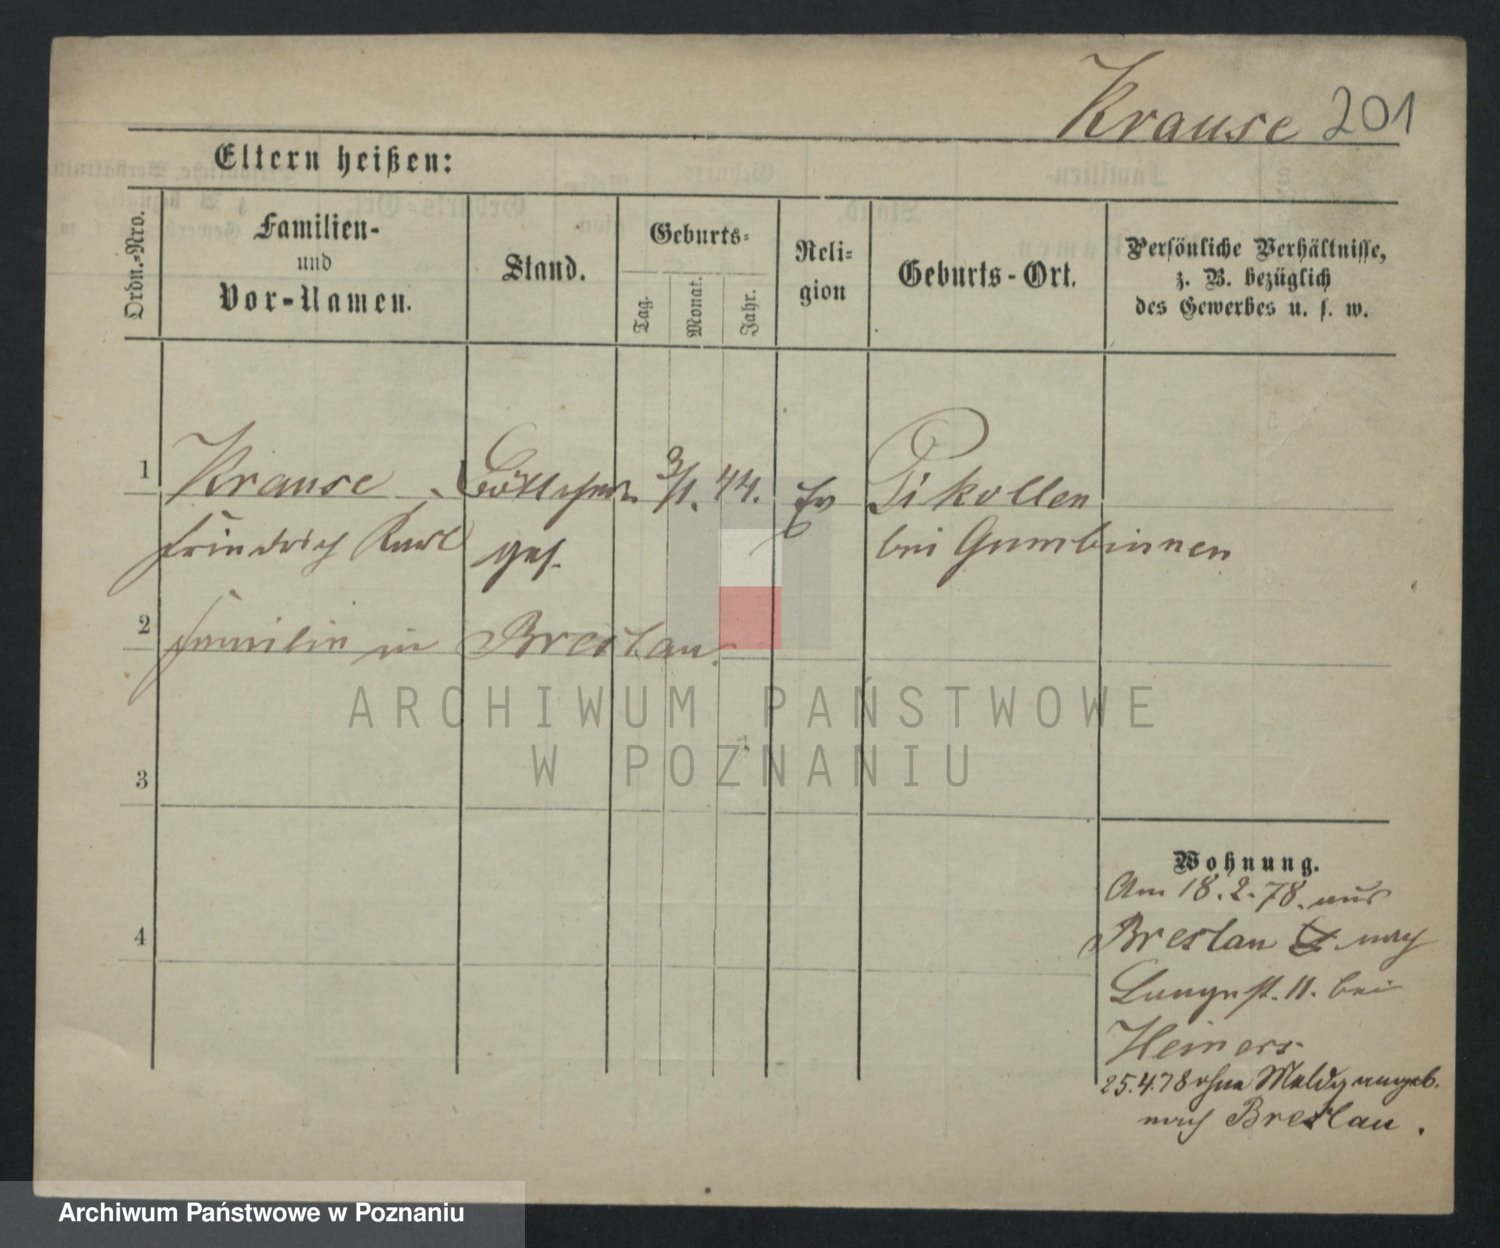 Krause 201
Eltern heißen:
Ordn.-Nro.
Familien-
und
Vor-Namen.
Stand.
Geburts-
Tag.
Monat.
Jahr.
Reli-
gion
Geburts-Ort.
Persönliche Verhältnisse,
z. B. bezüglich
des Gewerbes u. s. w.
1 Krause Böttcher 3/1. 44. Ev Pikollen
Friedrich Karl ges. bei Gumbinnen
2 Familie in Breslau.
ARCHIWUM PAŃSTWOWE
W POZNANIU
3
4
Wohnung.
Am 18.2.78. aus
Breslau nach
Langest. 11. bei
Heiners
25.4.78 ohne Meldg angeb.
nach Breslau.
Archiwum Państwowe w Poznaniu